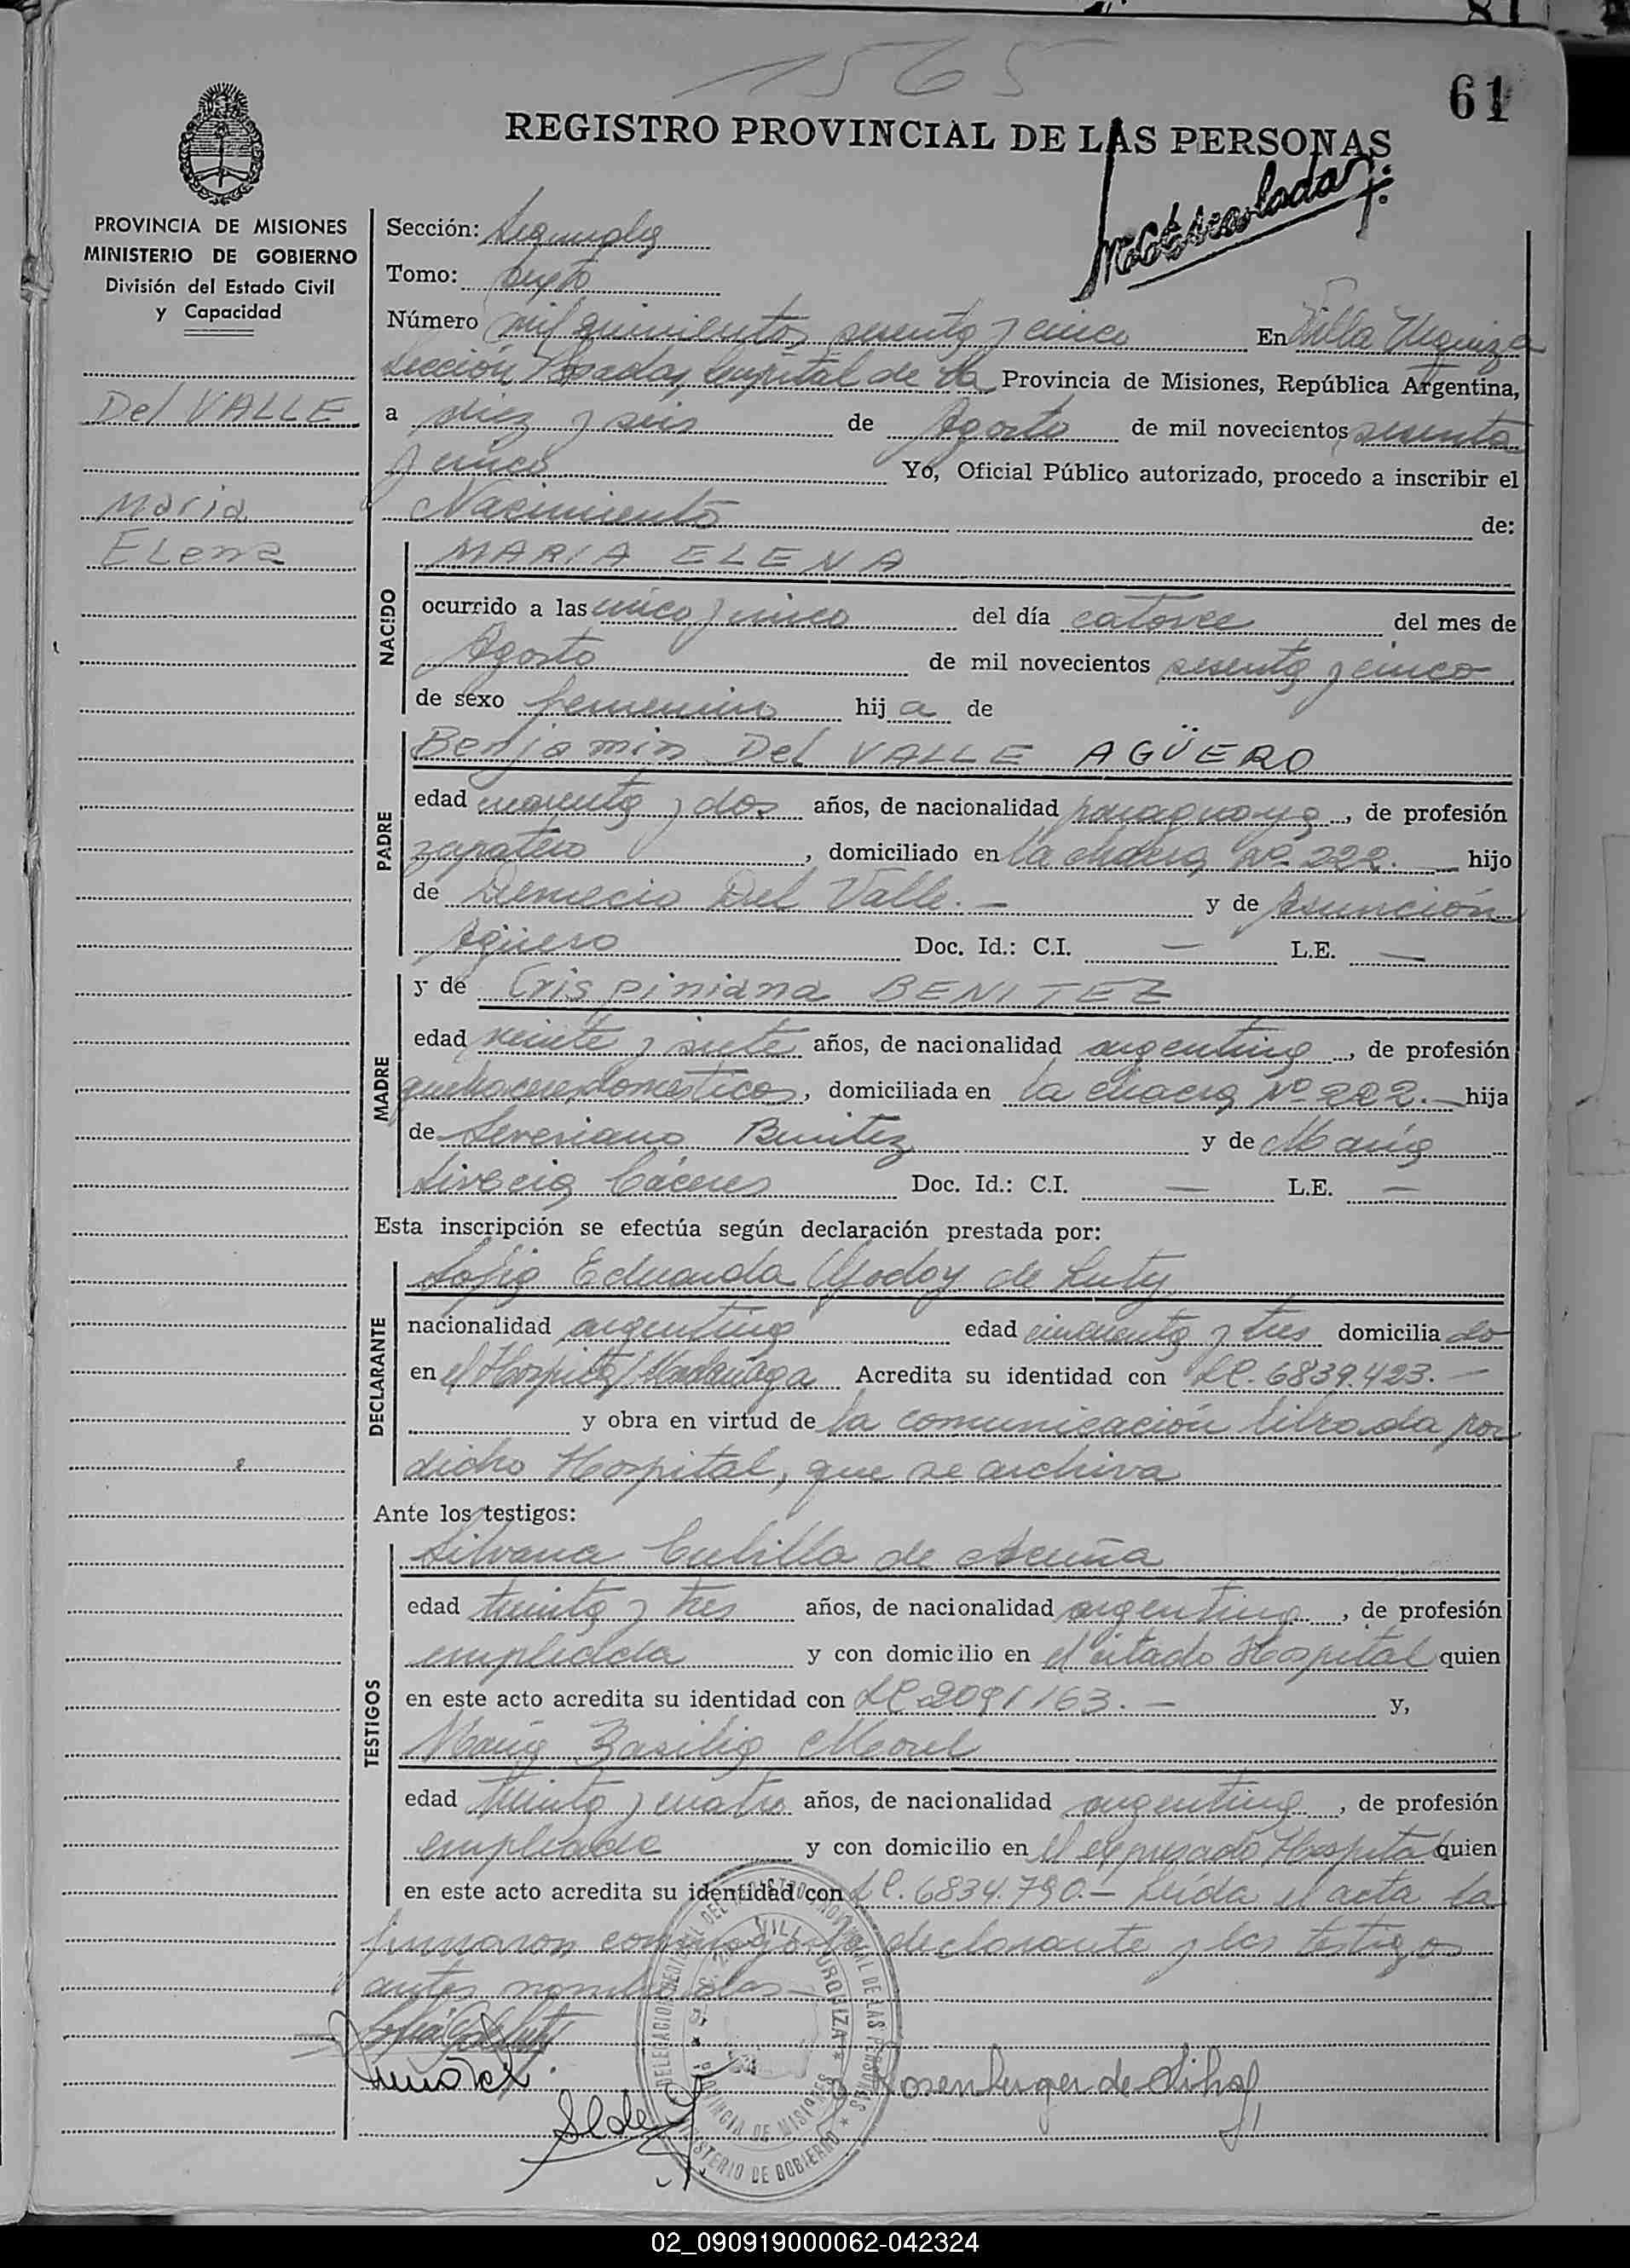 1565
61
REGISTRO PROVINCIAL DE LAS PERSONAS
matriculada
PROVINCIA DE MISIONES
MINISTERIO DE GOBIERNO
División del Estado Civil
y Capacidad
Del VALLE
Maria
ELena
Sección:
Tomo: sexto
Número mil quinientos sesenta y cinco En Villa Urquiza
Sección Posadas, Capital de la Provincia de Misiones, República Argentina,
a diez y seis de Agosto de mil novecientos sesenta
y cinco Yo, Oficial Público autorizado, procedo a inscribir el
Nacimiento de:
NACIDO
MARIA ELENA
ocurrido a las cinco y cinco del día catorce del mes de
Agosto de mil novecientos sesenta y cinco
de sexo femenino hij a de
PADRE
Benjamin Del VALLE AGÜERO
edad cuarenta y dos años, de nacionalidad paraguaya, de profesión
zapatero, domiciliado en la chacra Nº 222. hijo
de Demecio Del Valle.- y de Asunción
Agüero Doc. Id.: C.I. — L.E. —
MADRE
y de Crispiniana BENITEZ
edad veinte y siete años, de nacionalidad argentina, de profesión
quehaceres domésticos, domiciliada en la chacra Nº 222.- hija
de Severiano Benitez y de María
Cáceres Doc. Id.: C.I. — L.E. —
Esta inscripción se efectúa según declaración prestada por:
DECLARANTE
Sofia Eduarda Godoy de Luty
nacionalidad argentina edad cincuenta y tres domicilia do
en el Hospital Madariaga Acredita su identidad con LC. 6839.423.-
y obra en virtud de la comunicación librada por
dicho Hospital, que se archiva
Ante los testigos:
TESTIGOS
Silvana Cubilla de Acuña
edad treinta y tres años, de nacionalidad argentina, de profesión
empleada y con domicilio en el citado Hospital quien
en este acto acredita su identidad con LC 2091163.- y,
María Basilia Morel
edad treinta y cuatro años, de nacionalidad argentina, de profesión
empleada y con domicilio en el expresado Hospital quien
en este acto acredita su identidad con LC. 6834.790.- Leída el acta la
firmaron conmigo la declarante y los testigos
antes nombrados-
Sofia G de Luty
Morel
Rosenberger de
DELEGACION DEL REGISTRO PROVINCIAL DE LAS PERSONAS
VILLA URQUIZA
PROVINCIA DE MISIONES
MINISTERIO DE GOBIERNO
02_090919000062-042324